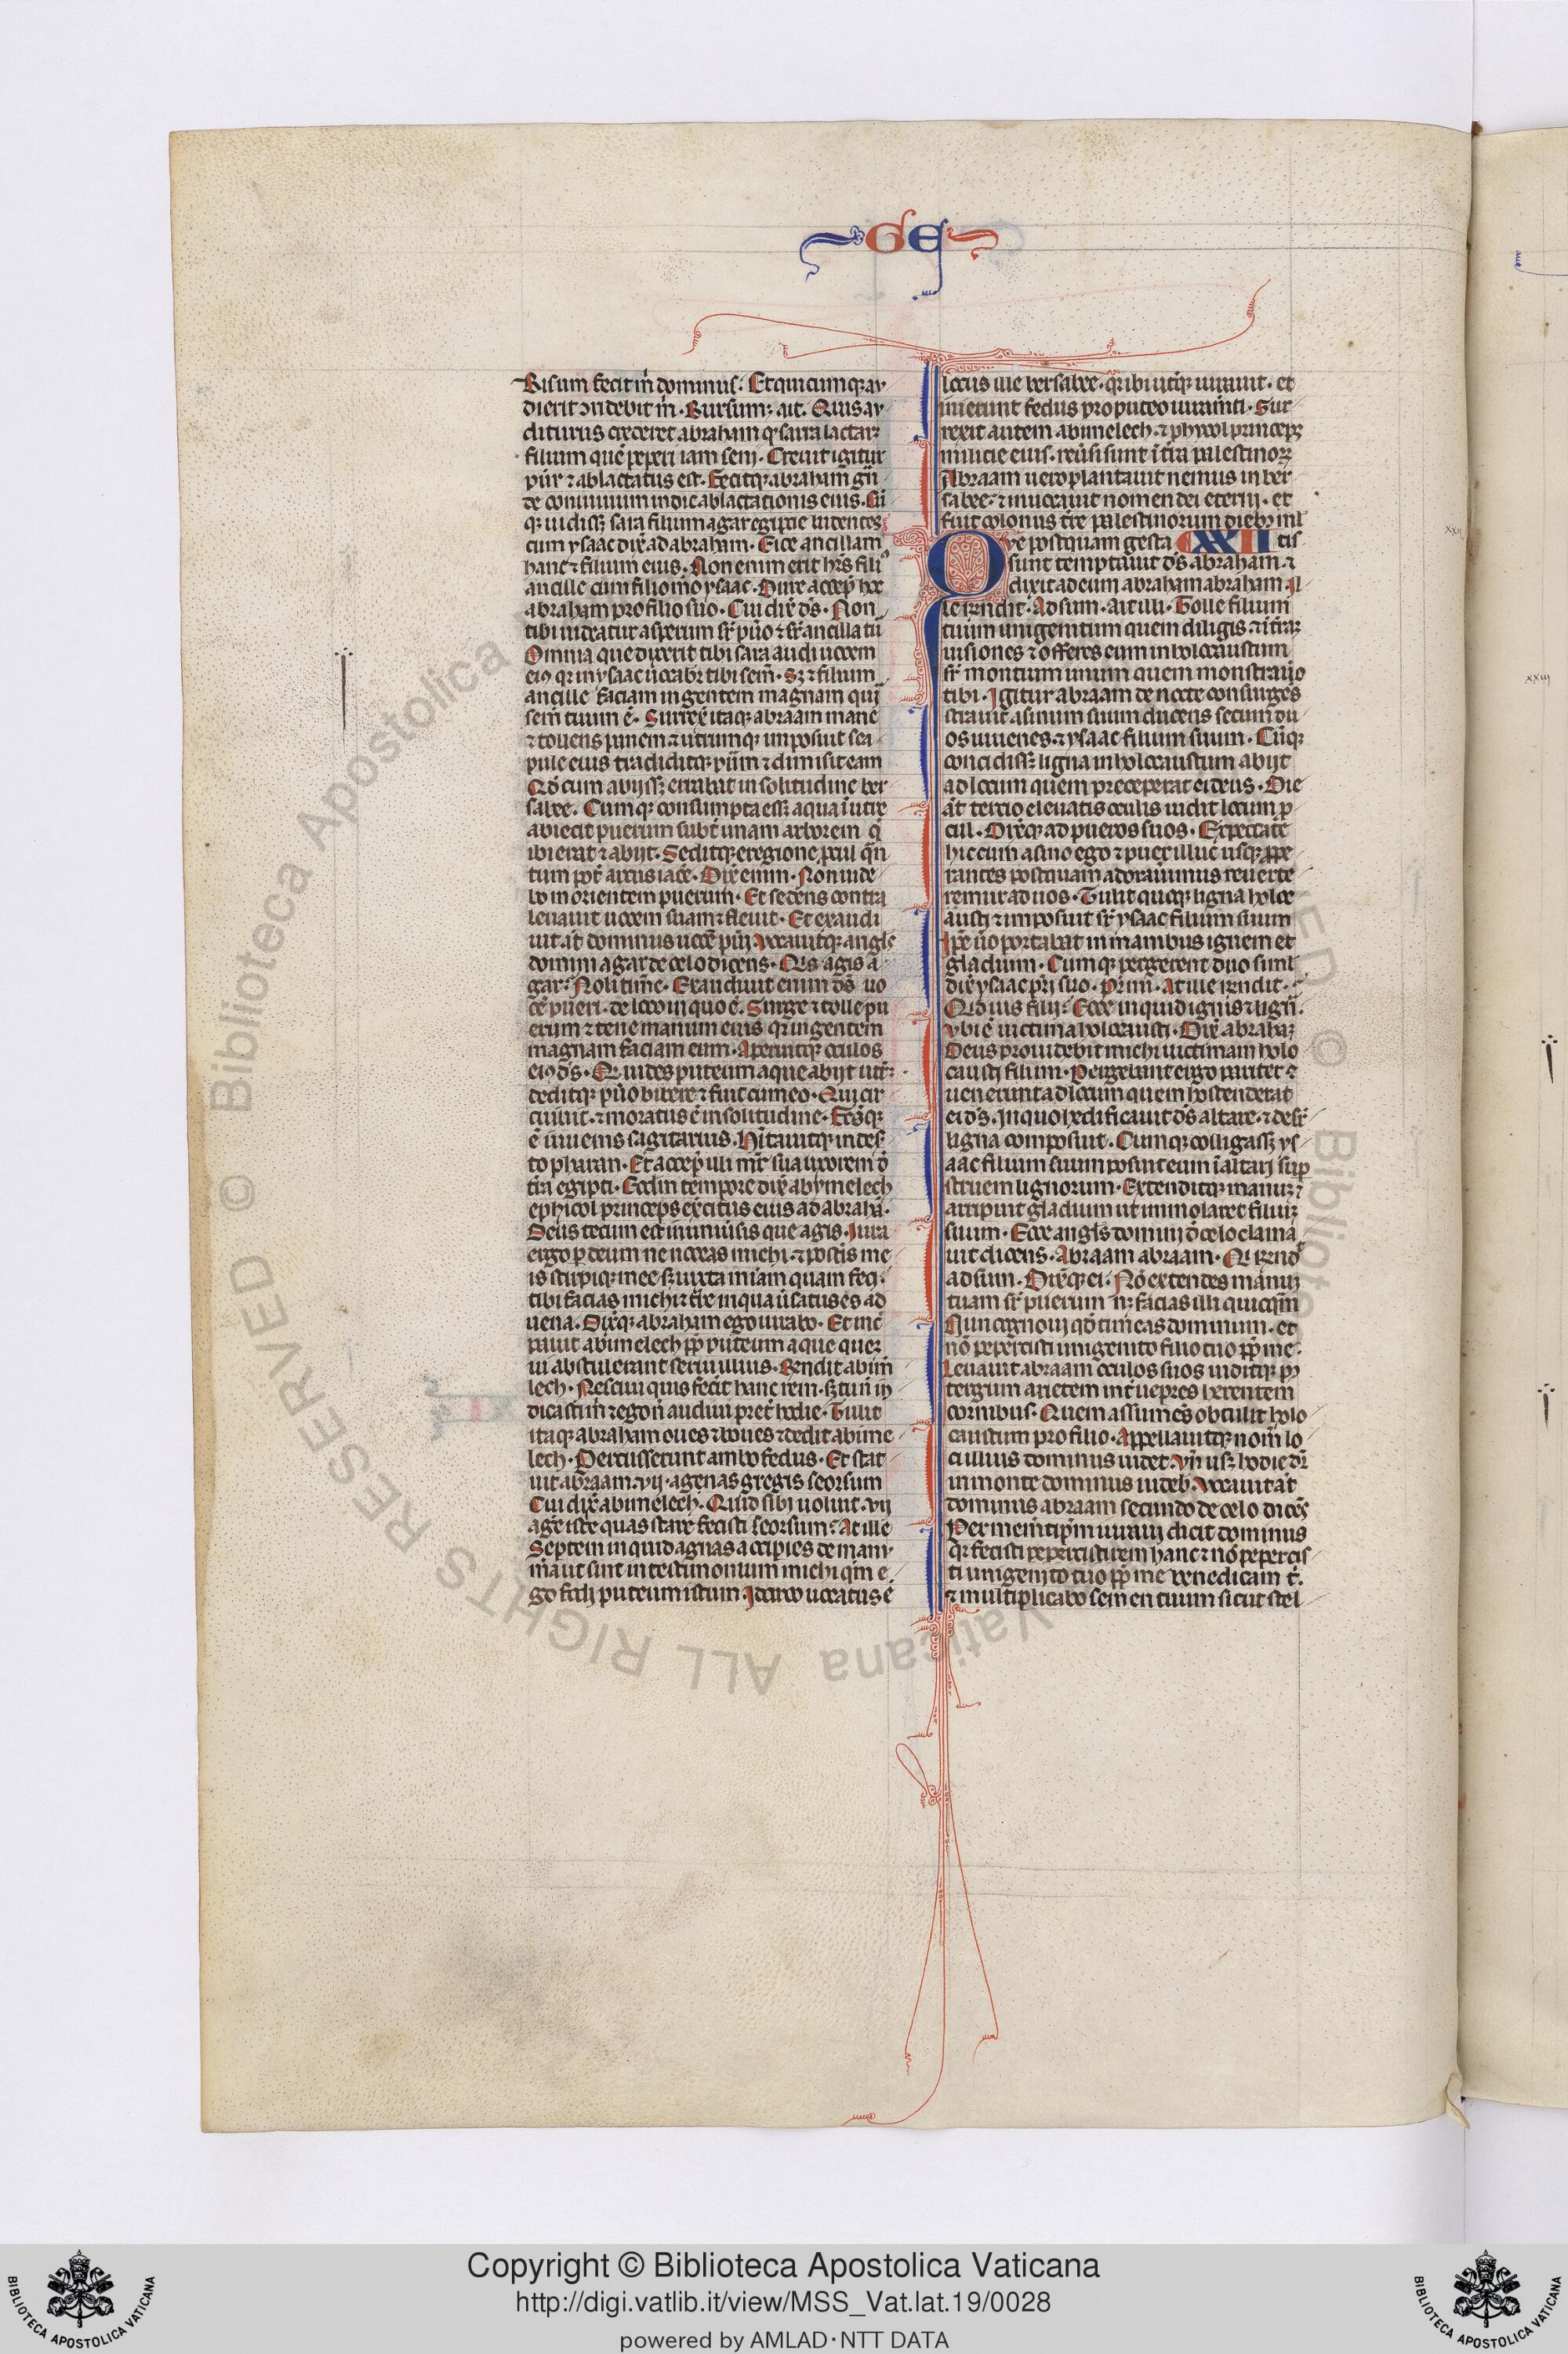 GE
Risum fecit m̅ dominus. Et quicumqꝫ au
dierit ꝯridebit m̅. Rursumꝫ ait. Quis au
diturus crederet abraham qꝫ sarra lactarꝫ
filium que̅ peperi iam seni. Creuit igitur
pu̅r ⁊ ablactatus est. Fecitqꝫ abraham gra̅
de conuiuium in die ablactationis eius. Cu̅
qꝫ uidissꝫ sara filium agar egiptie ludentes
cum ysaac dix̅ ad abraham. Eice ancillam
hanc ⁊ filium eius. Non enim erit hr̅s fili
ancille cum filio m̅o ysaac. Dure accep̅ hoc
abraham pro filio suo. Cui dix̅ ds̅. Non
tibi uideatur asperum sr̅ pu̅o ⁊ sr̅ ancilla tu̅
Omnia que dixerit tibi sara audi uocem
eiꝰ qꝛ in ysaac uocabr̅ tibi sem̅. Sꝫ ⁊ filium
ancille faciam in gentem magnam qui
sem̅ tuum e̅. Surrex̅ itaqꝫ abraam mane
⁊ tollens panem ⁊ utrumqꝫ imposuit sca
pule eius tradiditqꝫ pu̅m ⁊ dimisit eam
Q̅o cum abijssꝫ errabat in solitudine ber
sabee. Cumqꝫ consumpta essꝫ aqua i̅ utre
abiecit puerum subt̅ unam arborem q̅
ibi erat ⁊ abijt. Seditqꝫ e regione ꝓcul q̅n
tum pot̅ arcus iace̅. Dix̅ enim. Non uide
bo morientem puerum. Et sedens contra
leuauit uocem suam ⁊ fleuit. Et exaudi
uit at̅ dominus uoce̅ pu̅i. Vocauitqꝫ angls̅
domini agar de celo dicens. Qis̅ agis a
gar? Noli time̅. Exaudiuit enim ds̅ uo
ce̅ pueri. de loco in quo e̅. Surge ⁊ tolle pu
erum ⁊ tene manum eius qꝛ in gentem
magnam faciam eum. Aperuitqꝫ oculos
eiꝰ ds̅. Q̅ uides puteum aque abijt
deditqꝫ pu̅o bibere ⁊ fuit cum eo. Qui cr
cuiuit. ⁊ moratus e̅ in solitudine. Fcs̅qꝫ
e̅ iuuenis sagitarius. Hi̅tauitqꝫ in des̅
to pharan. Et accep̅ illi mr̅ sua uxorem d̅
tr̅a egipti. Eodem tempore dix̅ abymelech
ephicol princeps exe̅citus eius ad abraha̅.
Deus tecum est in uniu̅sis que agis. Iura
ergo ꝑ deum ne noceas michi. ⁊ posti̅s me
is stirpiqꝫ mee sꝫ iuxta mi̅am quam feci
tibi facias michi ⁊ tr̅e in qua u̅satus es ad
uena. Dix̅qꝫ abraham ego iurabo. Et inc̅
pauit abimelech ꝓp̅ puteum aque queꝫ
ui abstulerant serui illius. Rn̅dit abim̅
lech. Nesciui quis fecit hanc rem. sꝫ ⁊ tu n̅ in
dicasti m̅ ⁊ ego n̅ audiui pret̅ hodie. Tulit
itaqꝫ abraham oues ⁊ boues ⁊ dedit abime
lech. Percusserunt ambo fedus. Et stat
uit abraam. vij. agenas gregis seorsum
Cui dix̅ abimelech. Quid sibi uolunt. vij
agn̅e iste quas stare fecisti seorsum? At ille
Septem inquid agnas accipies de manu
m̅a ut sint in testimonium michi qm̅ e
go fodi puteum istum. Idcirco uocatus e̅
locus ille bersabee. qꝛ ibi ut̅qꝫ iurauit. et
inierunt fedus pro puteo iuram̅ti. Sur
rexit autem abimelech. ⁊ phycol princeps
milicie eius. reu̅si sunt i̅ tr̅a palestinoꝝ
Abraam uero plantauit nemus in ber
sabee. ⁊ inuocauit nomen dei eterni. et
fuit colonus tr̅e palestinorum diebꝫ ml̅
Qve postquam gesta XXII tis
sunt temptauit ds̅ abraham. ⁊
dixit ad eum abraham abraham. Il
le rn̅dit. Adsum. Ait illi. Tolle filium
tuum unigenitum quem diligis ⁊ i̅ tr̅aꝫ
uisiones ⁊ offeres eum in holocaustum
sr̅ montium unum quem monstrau̅o
tibi. Igitur abraam de nocte consurge̅s
strauit asinum suum ducens secum du
os iuuenes. ⁊ ysaac filium suum. Cu̅qꝫ
concidissꝫ ligna in holocaustum abijt
ad locum quem preceperat ei deus. Die
at̅ tercio eleuatis oculis uidit locum ꝓ
cul. Dix̅qꝫ ad pueros suos. Expectate
hic cum asino ego ⁊ puer illuc usqꝫ ꝓpe
rantes postquam adorau̅imus reuerte
remur ad uos. Tulit quoqꝫ ligna holoc
austi ⁊ imposuit sr̅ ysaac filium suum
Ip̅e u̅o portabat in manibus ignem et
gladium. Cumqꝫ pergerent duo siml̅
dix̅ ysaac pr̅i suo. Pr̅ mi̅. At ille rn̅dit.
Qid uis fili? Ecce inquid ignis ⁊ lign̅.
Vbi e̅ uictima holocausti. Dix̅ abrahaꝫ
Deus prouidebit michi uictimam holo
causti filium. Pergebant ergo pariter ⁊
uenerunt ad locum quem hostenderat
ei ds̅. In quo hedificauit ds̅ altare. ⁊ desr̅
ligna composuit. Cumqꝫ colligassꝫ ys
aac filium suum posuit eum i̅ altari sup
struem lignorum. Extenditqꝫ manuꝫ ⁊
arripuit gladium ut immolaret filiuꝫ
suum. Ecce angls̅ domini d̅ celo clama
uit dicens. Abraam abraam. Q̅ rn̅d
adsum. Dix̅qꝫ ei. No̅ extendes manuꝫ
tuam sr̅ puerum nꝫ facias illi quicq̅m
Nun cognoui qd̅ timeas dominum. et
no̅ pepercisti unigenito filio tuo ꝓp̅ me.
Leuauit abraam oculos suos uiditqꝫ pꝰ
tergum arietem int̅ uepres herentem
cornibus. Quem assume̅s obtulit holo
caustum pro filio. Appellauitqꝫ nom̅ lo
ci illius dominus uidet. Vn̅ usqꝫ hodie dr̅
in monte dominus uideb. Vocauit at̅
dominus abraam secundo de celo dice̅s
Per memetip̅m iuraui dicit dominus
qꝛ fecisti rem hanc ⁊ no̅ pepercis
ti unigenito tuo ꝓp̅ me benedicam t̅.
⁊ multiplicabo semen tuum sicut stel
xxij
xxiij
Copyright © Biblioteca Apostolica Vaticana
http://digi.vatlib.it/view/MSS_Vat.lat.19/0028
powered by AMLAD·NTT DATA
BIBLIOTECA APOSTOLICA VATICANA
BIBLIOTECA APOSTOLICA VATICANA